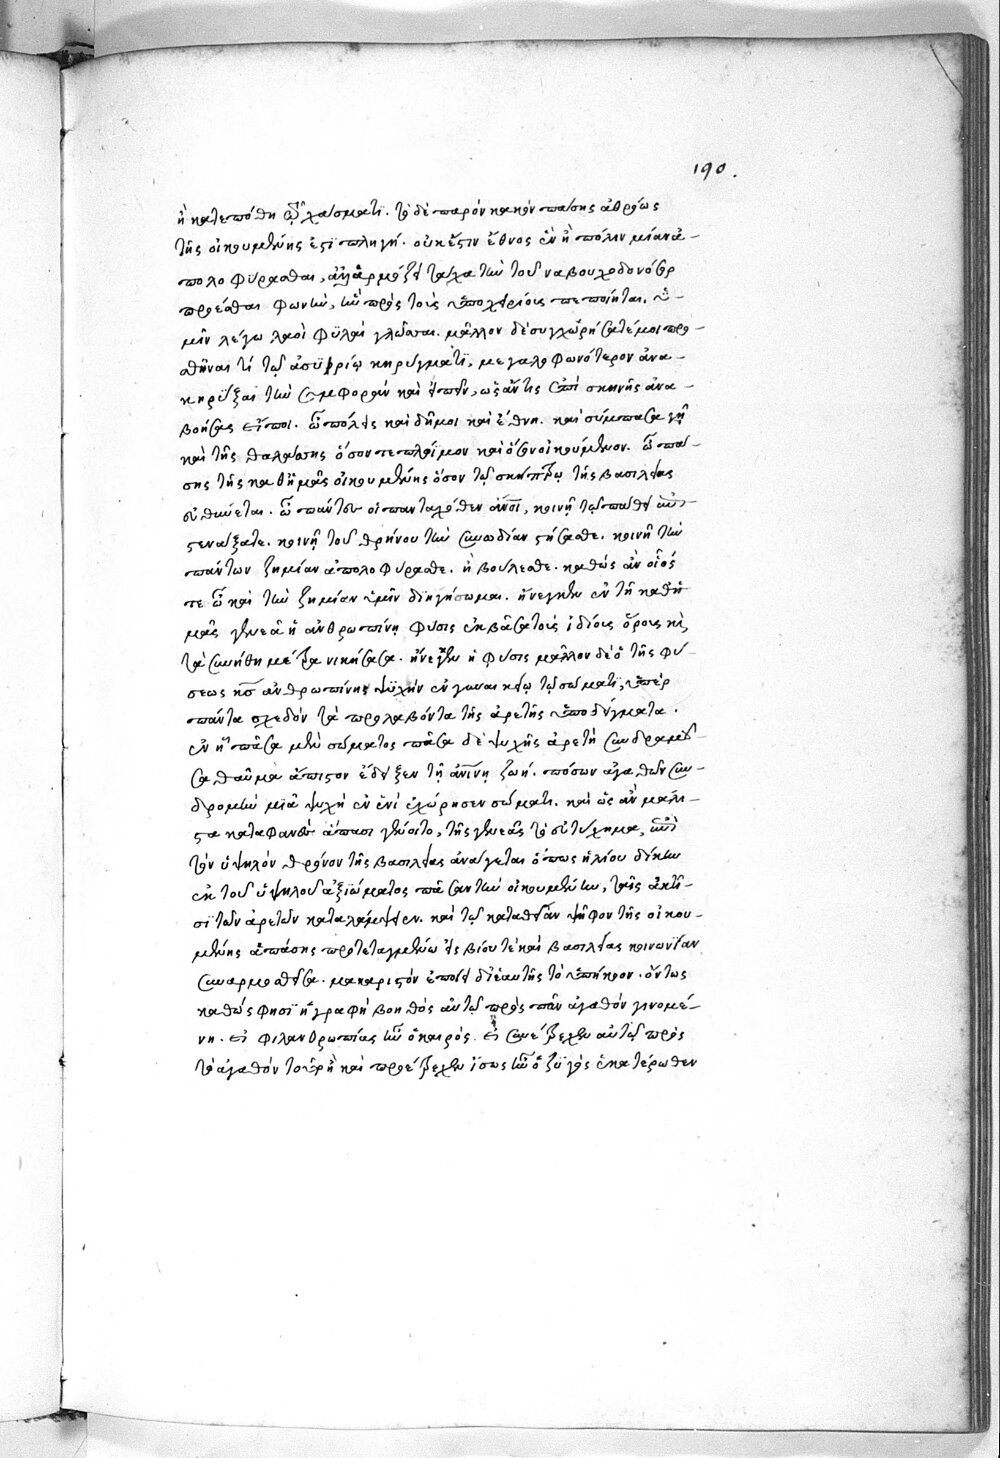 190.
ἢ κατεπόθη τῷ χάσματι. τὸ δὲ παρὸν κακὸν πάσης ἀθρόως
τῆς οἰκουμένης ἐστὶ πληγή. οὐκ ἔστιν ἔθνος ἓν ἢ πόλιν μίαν ἀ-
πολοφύρασθαι, ἀλλ' ἁρμόζει τάχα τὴν τοῦ ναβουχοδονόσορ
προέσθαι φωνὴν, ἣν πρὸς τοὺς ὑποχειρίους πεποίηται. ὑ-
μῖν λέγω λαοὶ φῦλαι γλῶσσαι. μᾶλλον δὲ συγχωρήσατέ μοι προσ-
θῆναί τι τῷ ἀσυρίῳ κηρύγματι, μεγαλοφωνότερον ἀνα-
κηρῦξαι τὴν συμφορὰν καὶ εἰπεῖν, ὡς ἄν τις ἐπὶ σκηνῆς ἀνα-
βοήσας εἴποι. ὦ πόλεις καὶ δῆμοι καὶ ἔθνη. καὶ σύμπασα γῆ
καὶ τῆς θαλάσσης ὅσον τε πλόϊμον καὶ ὅσον οἰκούμενον. ὦ πά-
σης τῆς καθ' ἡμᾶς οἰκουμένης ὅσον τῷ σκήπτρῳ τῆς βασιλείας
εὐθύνεται. ὦ πάντες οἱ πανταχόθεν ἄνοι, κοινῇ τῷ πάθει ἐπι
στενάξατε. κοινῇ τοῦ θρήνου τὴν συνωδίαν στήσασθε. κοινὴν τὴν
πάντων ζημίαν ἀπολοφύρασθε. ἢ βούλεσθε. καθὼς ἂν οἷός
τε ὦ καὶ τὴν ζημίαν ὑμῖν διηγήσωμαι. ἤνεγκεν ἐν τῇ καθ' ἡ
μᾶς γενεᾷ ἡ ἀνθρωπίνη φύσις ἐκβᾶσα τοὺς ἰδίους ὅρους καὶ
τὰ συνήθη μέτρα νικήσασα. ἤνεγκεν ἡ φύσις μᾶλλον δὲ ὁ τῆς φύ-
σεως κς ἀνθρωπίνης ψυχὴν ἐν γυναικείῳ τῷ σώματι, ὑπὲρ
πάντα σχεδὸν τὰ προλαβόντα τῆς ἀρετῆς ὑποδείγματα.
ἐν ᾗ πᾶσα μὲν σώματος πᾶσα δὲ ψυχῆς ἀρετὴ συνδραμοῦ
σα θαῦμα ἄπιστον ἔδειξεν τῇ ἀνίνῃ ζωῇ. πόσων ἀγαθῶν συν-
δρομὴν μία ψυχὴ ἐν ἑνὶ ἐχώρησεν σώματι. καὶ ὡς ἂν μάλι-
στα καταφανὲς ἅπασι γένοιτο, τῆς γενεᾶς τὸ εὐτύχημα, ἐπὶ
τὸν ὑψηλὸν θρόνον τῆς βασιλείας ἀνάγεται ὅπως ἡλίου δίκην
ἐκ τοῦ ὑψηλοῦ ἀξιώματος πᾶσαν τὴν οἰκουμένην, ταῖς ἀκτῖ-
σι τῶν ἀρετῶν καταλάμψειεν. καὶ τῷ κατὰ θείαν ψῆφον τῆς οἰκου-
μένης ἁπάσης προτεταγμένῳ εἰς βίου τὲ καὶ βασιλείας κοινωνίαν
συναρμοσθεῖσα. μακαριστὸν ἐποίει δι' ἑαυτῆς τὸ ὑπήκοον. ὄντως
καθώς φησϊ ἡ γραφὴ βοηθὸς αὐτῷ πρὸς πᾶν ἀγαθὸν γινομέ-
νη. εἰ φιλανθρωπίας ἦν ὁ καιρὸς. εἰ συνέτρεχεν αὐτῷ πρὸς
τὸ ἀγαθὸν τοῦτο ἢ καὶ προέτρεχεν ἴσως ἦν ὁ ζυγὸς ἑκατέρωθεν